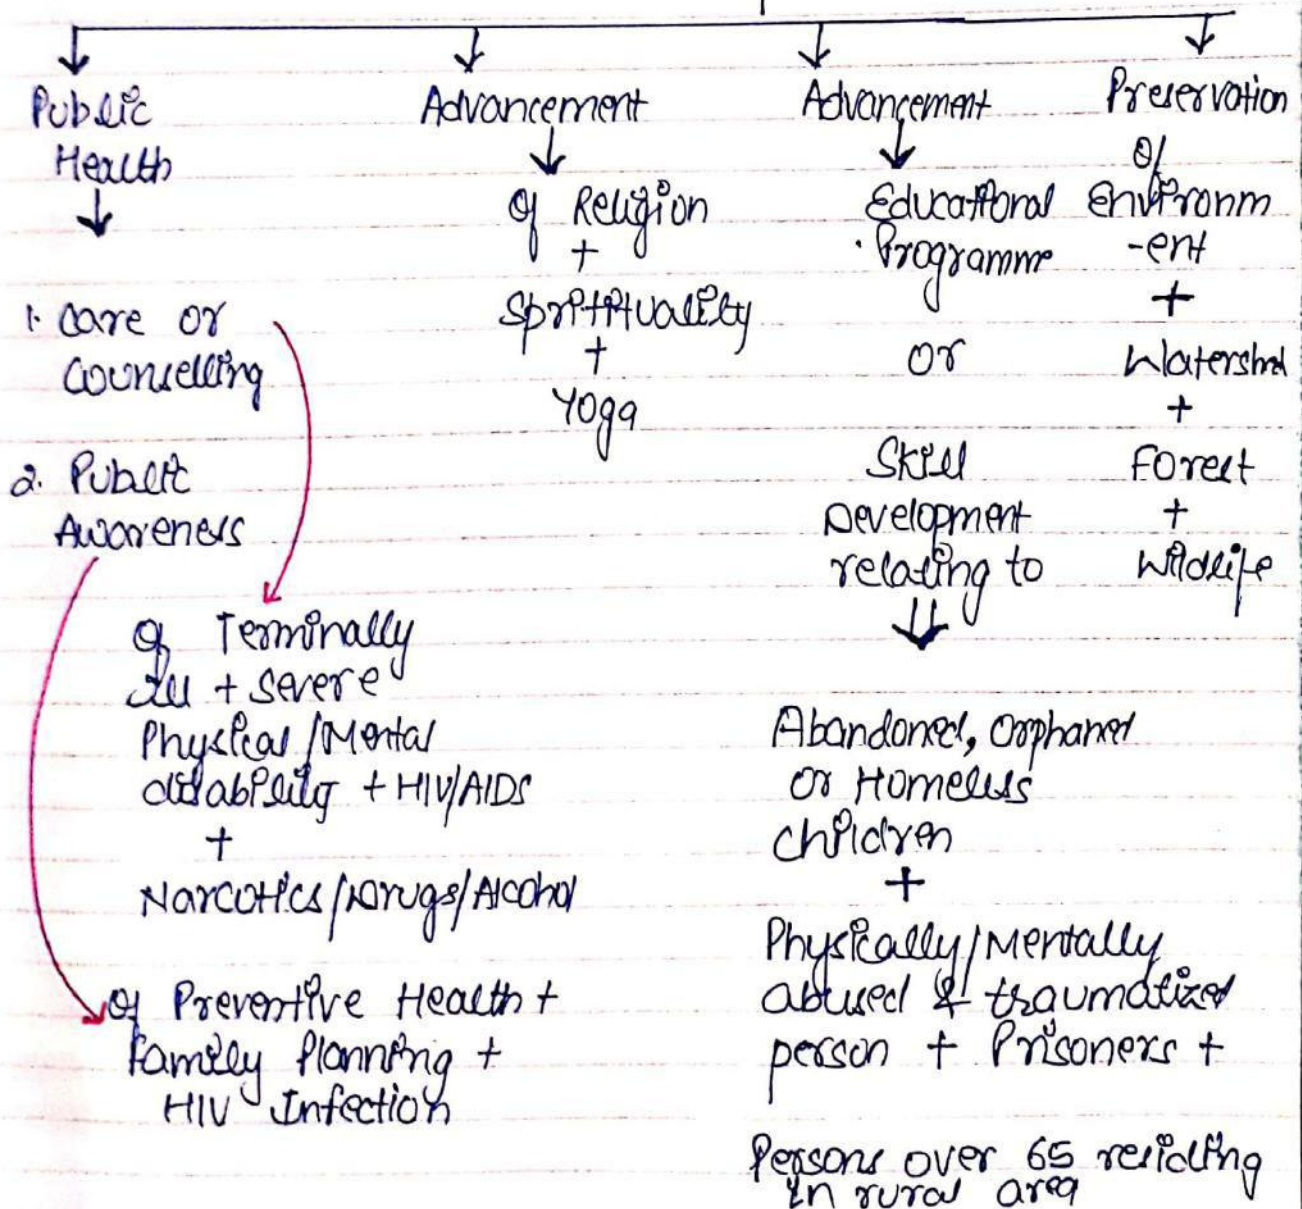 Public
Health
1. Care or
Counselling
2. Public
Awareness
of Terminally
ill + severe
Physical/Mental
disability + HIV/AIDS
+
Narcotics/Drugs/Alcohol
of Preventive Health +
family Planning +
HIV Infection
Advancement
of Religion
+
Spritituality
+
Yoga
Advancement
Educational
Programme
or
Skill
Development
relating to
Abandoned, Orphaned
or Homeless
children
+
Physically/Mentally
abused & traumatized
person + Prisoners +
Persons over 65 residing
in rural area
Preservation
of
Environm
-ent
+
Watershed
+
Forest
+
Wildlife